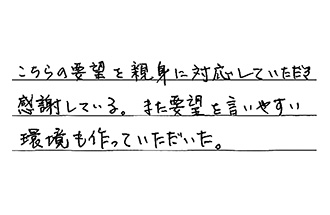 こちらの要望を親身に対応していただき
感謝している。また要望を言いやすい
環境も作っていただいた。